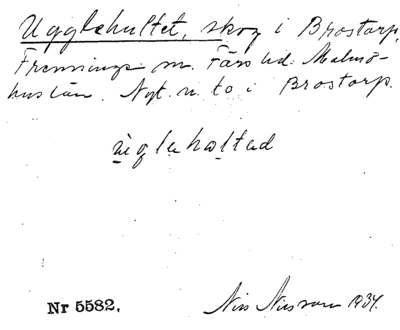 Ugglehultet, skog i Brostarp,
Frenninge sn. Färs hd. Malmö-
hus län. Nyt. u. to i Brostarp.
ùglehaltad
Nr 5582.
Nils Nilsson 1934.